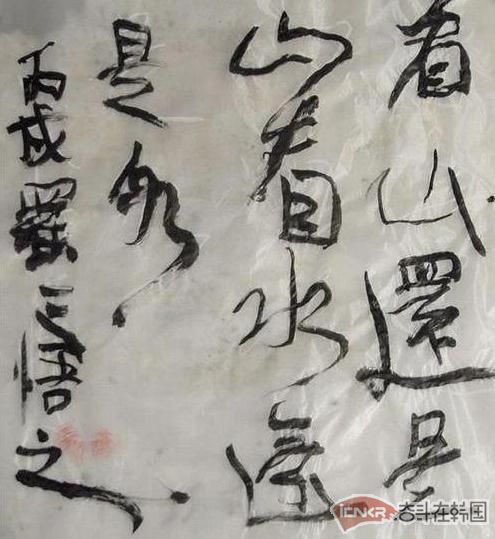 看山還是
山看水還
是水
丙戌羅三悟之
iCNKR 奋斗在韩国